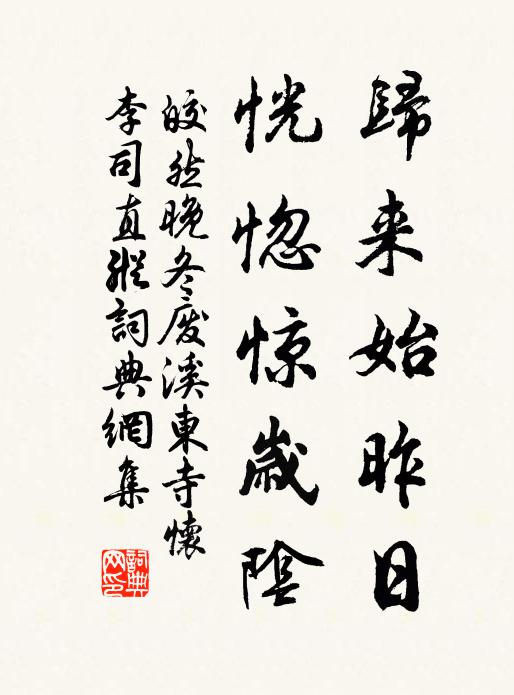 歸来始昨日
恍惚惊歲陰
皎然晚冬廢溪東寺懷
李司直縱詞典網集
詞典网印